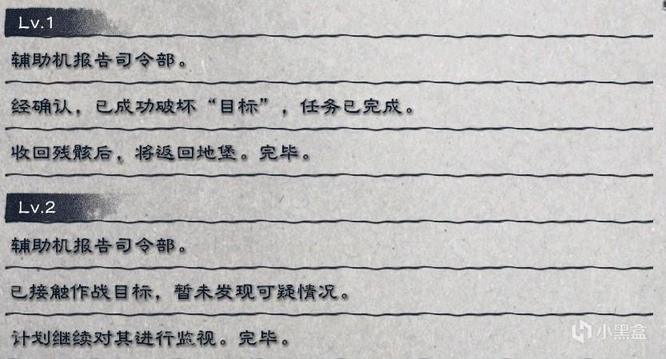 Lv.1
辅助机报告司令部。
经确认，已成功破坏“目标”，任务已完成。
收回残骸后，将返回地堡。完毕。
Lv.2
辅助机报告司令部。
已接触作战目标，暂未发现可疑情况。
计划继续对其进行监视。完毕。
小黑盒